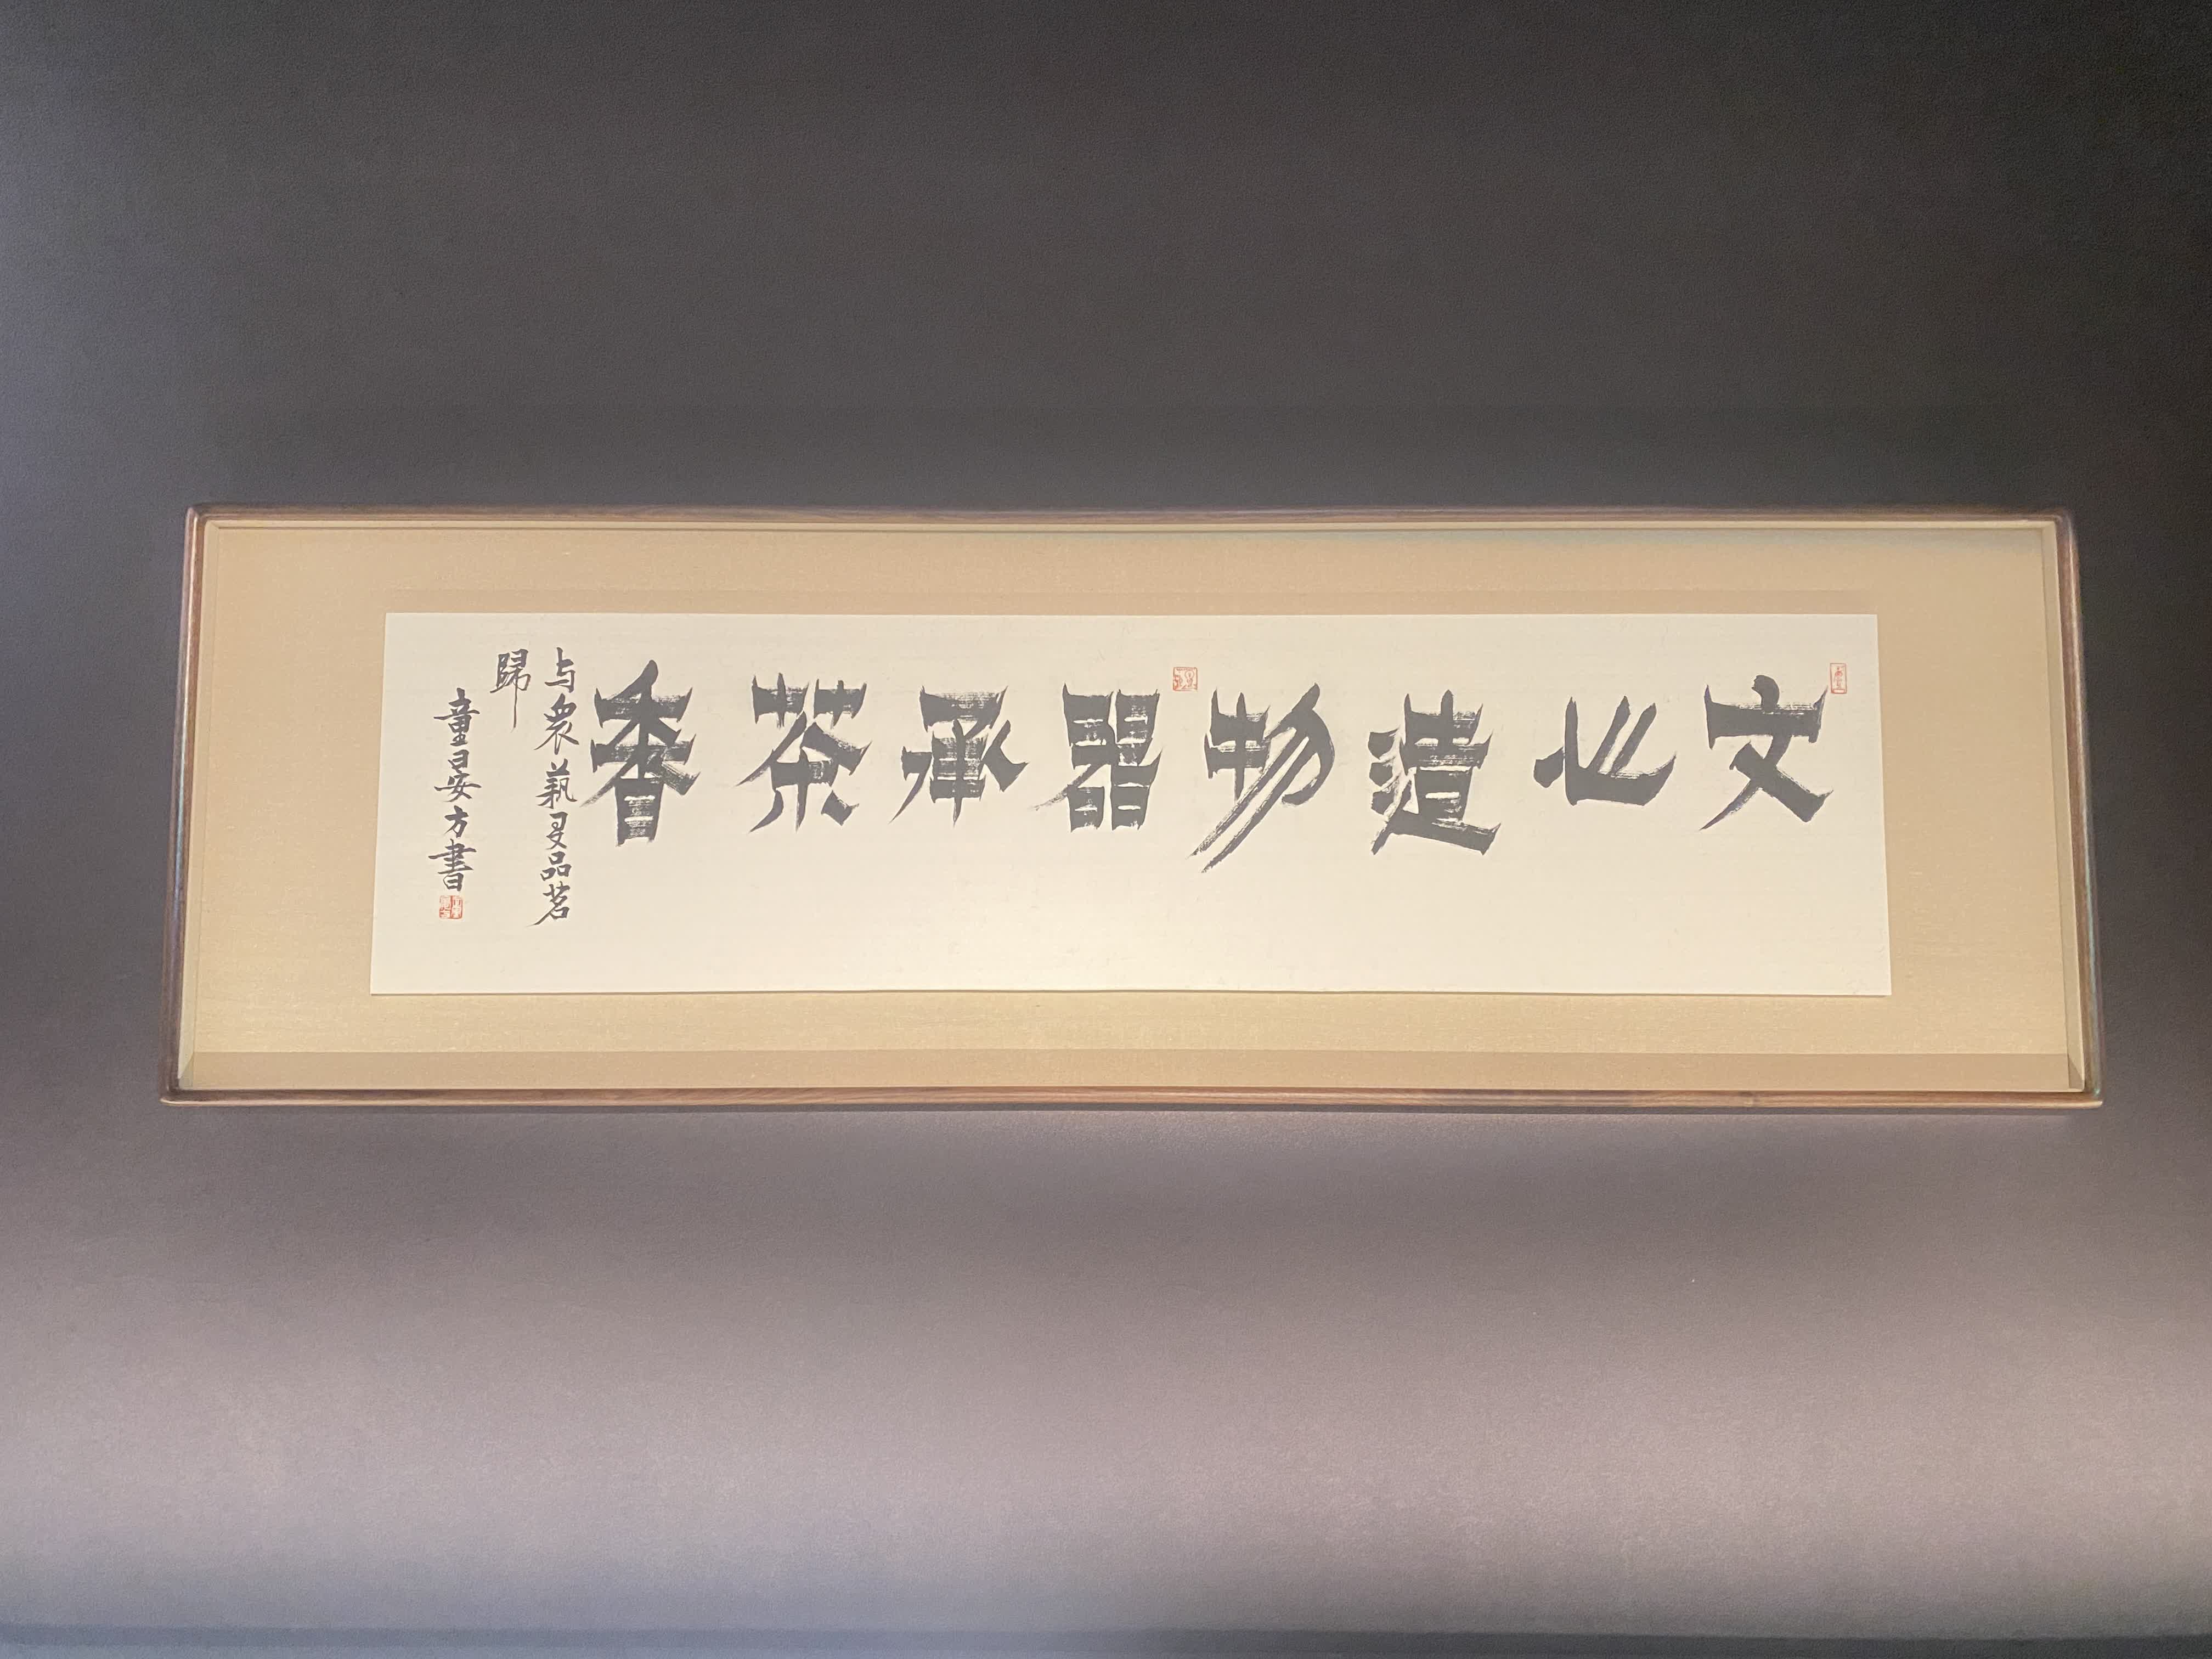 文心造物器承茶香
与衆藝友品茗
歸
童晏方書